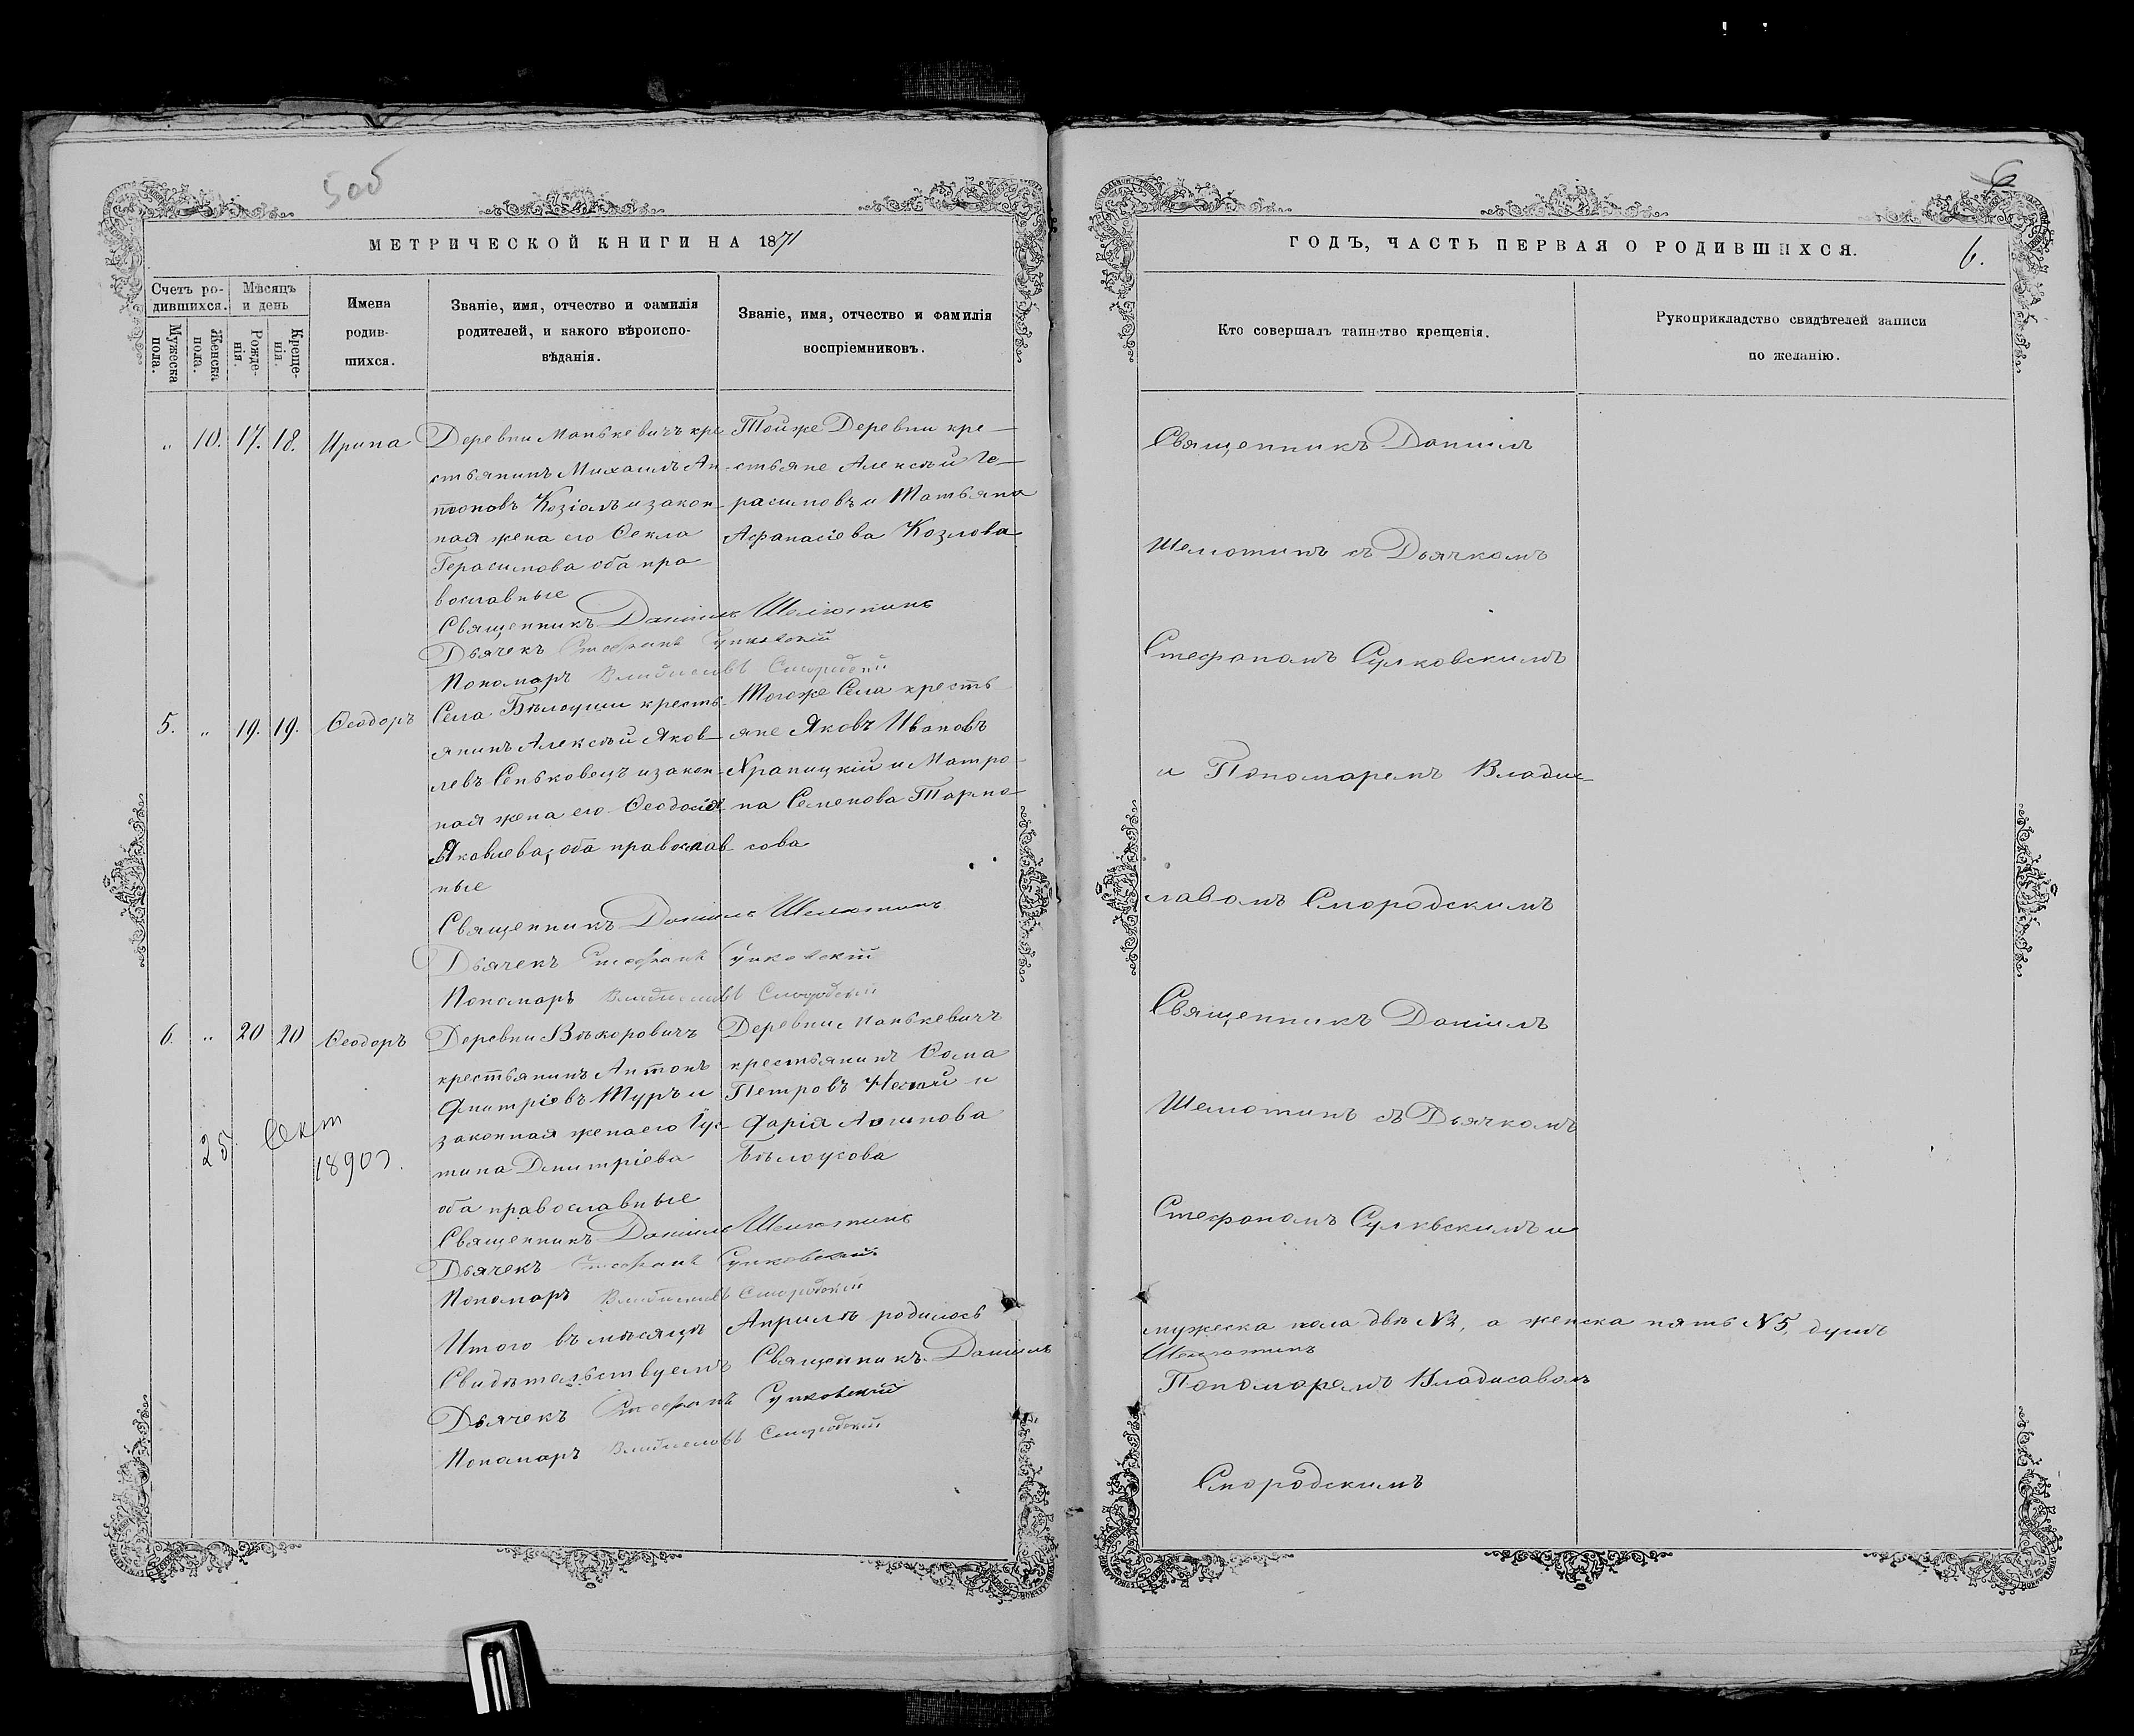 5об
МЕТРИЧЕСКОЙ КНИГИ НА 1871
Счетъ ро-
дившихся.
Мѣсяцъ
и день
Мужеска
пола.
Женска
пола.
Рожде-
нія.
Креще-
нія.
Имена
родив-
шихся.
Званіе, имя, отчество и фамилія
родителей, и какого вѣроиспо-
вѣданія.
Званіе, имя, отчество и фамилія
воспріемниковъ.
„ 10. 17. 18. Ирина
Деревни Манькевичъ кре
стьянинъ Михаилъ Ан
тоновъ Козіалъ и закон
ная жена его Ѳекла
Герасимова оба пра
вославные
Тойже Деревни кре-
стьяне Алексѣй Ге-
расимовъ и Татьяна
Афанасіева Козлова
Священникъ Даніилъ Шелютинъ
Дьячекъ Стефанъ Сулковскій
Пономарь Владиславъ Смородскій
5. „ 19. 19. Ѳеодоръ
Села Бѣлоуши кресть
янинъ Алексѣй Яков-
левъ Сеньковецъ и закон
ная жена его Ѳеодосія
Яковлева, оба православ
ные
Тогоже Села кресть
яне Яковъ Ивановъ
Храпицкій и Матро-
на Семенова Тарпо-
сова
Священникъ Даніилъ Шелютинъ
Дьячекъ Стефанъ Сулковскій
Пономарь Владиславъ Смородскій
6. „ 20 20 Ѳеодоръ
Деревни Вѣкоровичъ
крестьянинъ Антонъ
Дмитріевъ Туръ и
законная жена его Іус-
тина Дмитріева
оба православные
Деревни Манькевичъ
крестьянинъ Ѳома
Петровъ и
Дарія
Бѣлоусова
25 Окт
1890 г.
Священникъ Даніилъ Шелютинъ
Дьячекъ Стефанъ Сулковскій
Пономарь Владиславъ Смородскій
Итого въ мѣсяцѣ Априлѣ родилось
Свидѣтельствуемъ Священникъ Даніилъ
Дьячекъ Стефанъ Сулковскій
Пономарь Владиславъ Смородскій
6
ГОДЪ, ЧАСТЬ ПЕРВАЯ О РОДИВШИХСЯ.
6.
Кто совершалъ таинство крещенія.
Рукоприкладство свидѣтелей записи
по желанію.
Священникъ Даніилъ
Шелютинъ съ Дьячкомъ
Стефаномъ Сулковскимъ
и Пономаремъ Владис-
лавомъ Смородскимъ
Священникъ Даніилъ
Шелютинъ съ Дьячкомъ
Стефаномъ Сулквскимъ и
мужеска пола двѣ №2, а женска пять №5, душъ
Шелютинъ
Пономаремъ Владисавом
Смородскимъ